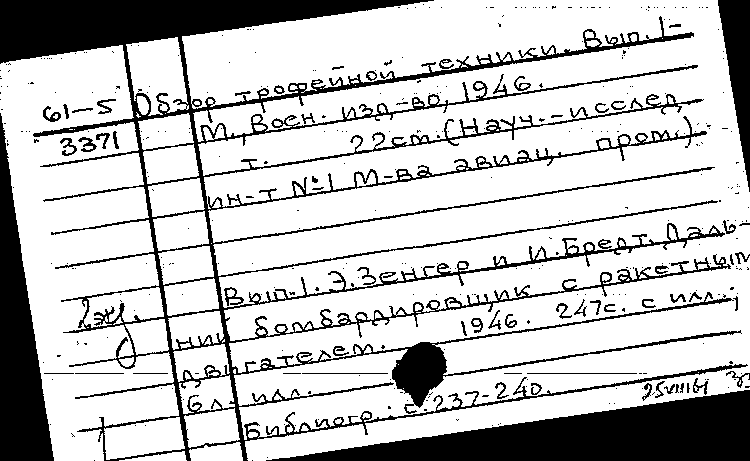 61-5 Обзор трофейной техники. Вып. 1-
3371 М., Воен. изд-во, 1946.
т. 22см. (Науч.-исслед.
ин-т №1 М-ва авиац. пром.)
Вып.1. Э.Зенгер и И.Бредт. Даль-
2эк.
ний бомбардировщик с ракетным
двигателем. 1946. 247с. с илл.;
6 л. илл.
Библиогр.: с.237-240.
25VIII61